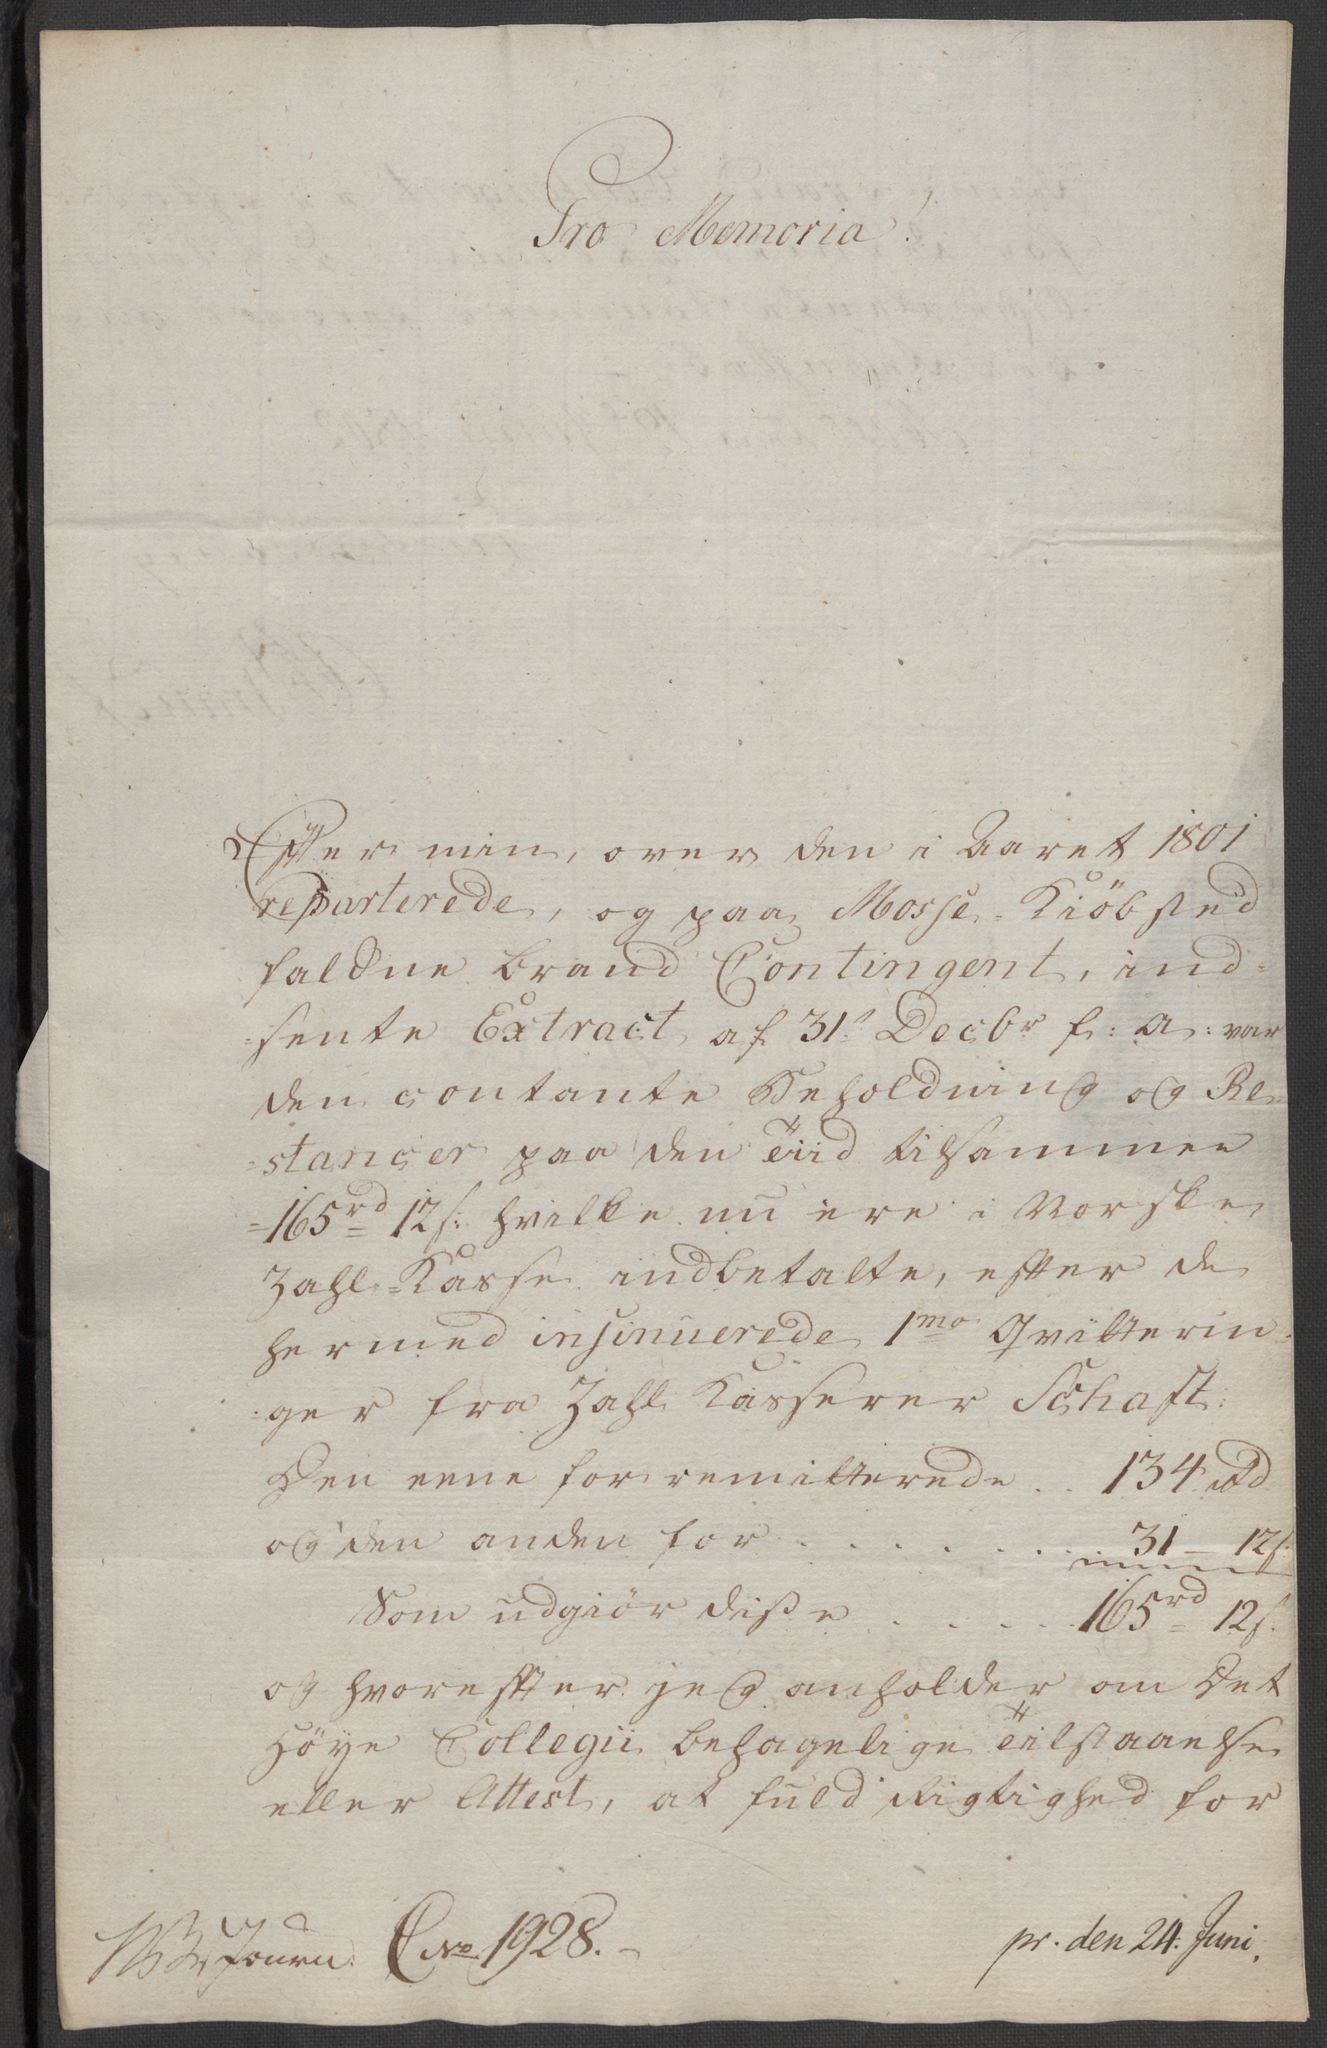 Pro Memoria!
Efter min, over den i Aaret 1801
reparterede, og paa Mosse Kiöbsted
faldne Brand Contingent, ind-
-sente Extract af 31t Decbr f: a: var
den contante Beholdning og Re-
-stancer paa den Tiid tilsammen
=165rd 12s: hvilke nu ere i Norske
Zahl-Kasse indbetalte, efter de
hermed insinuerede 1mo Qvitterin-
-ger fra Zahl Kasserer Schaft:
Den eene for remitterede .. 134 Rd
og den anden for . . . . . . . 31 — 12s.
Som udgiör disse . . . . . 165rd 12s.
og hvorefter jeg anholder om Det
Höye Collegii behagelige Tilstaaelse
eller Attest, at fuld Rigtighed for
Journ: C No 1928.
pr. den 24. Juni.